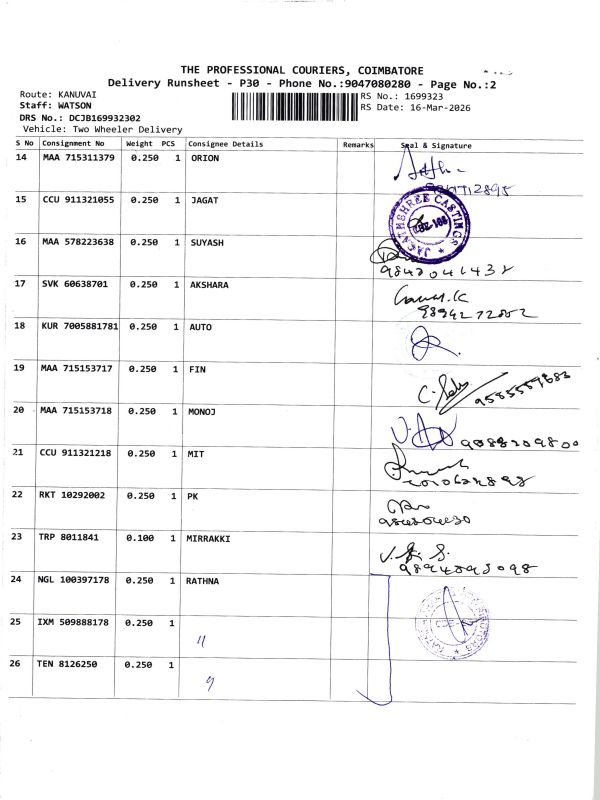 THE PROFESSIONAL COURIERS, COIMBATORE
Delivery Runsheet - P30 - Phone No.:9047080280 - Page No.:2
Route: KANUVAI
RS No.: 1699323
Staff: WATSON
RS Date: 16-Mar-2026
DRS No.: DCJB169932302
Vehicle: Two Wheeler Delivery
S No Consignment No Weight PCS Consignee Details Remarks Seal & Signature
14 MAA 715311379 0.250 1 ORION
15 CCU 911321055 0.250 1 JAGAT
JAGATHSHREE CASTINGS
16 MAA 578223638 0.250 1 SUYASH
17 SVK 60638701 0.250 1 AKSHARA
18 KUR 7005881781 0.250 1 AUTO
19 MAA 715153717 0.250 1 FIN
20 MAA 715153718 0.250 1 MONOJ
21 CCU 911321218 0.250 1 MIT
22 RKT 10292002 0.250 1 PK
23 TRP 8011841 0.100 1 MIRRAKKI
24 NGL 100397178 0.250 1 RATHNA
25 IXM 509888178 0.250 1 "
26 TEN 8126250 0.250 1 "